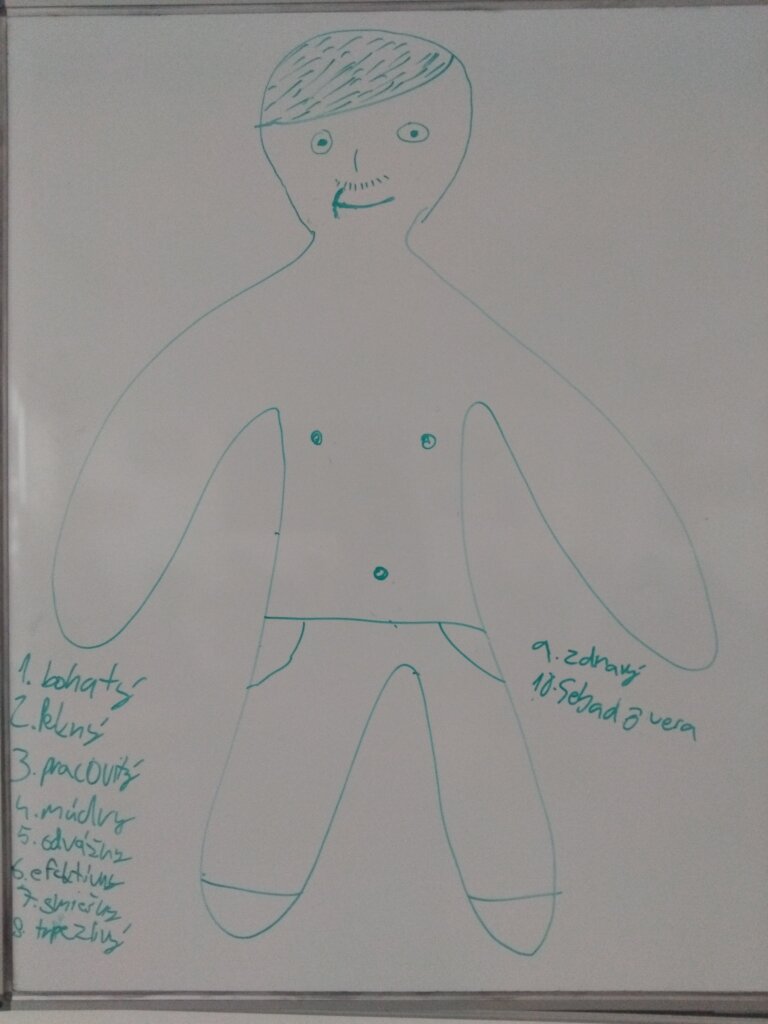 1. bohatý
2. Pekný
3. pracovitý
4. múdry
5. odvážny
6. efektívny
7. smiešny
8. trpezlivý
9. zdravý
10. Sebadôvera